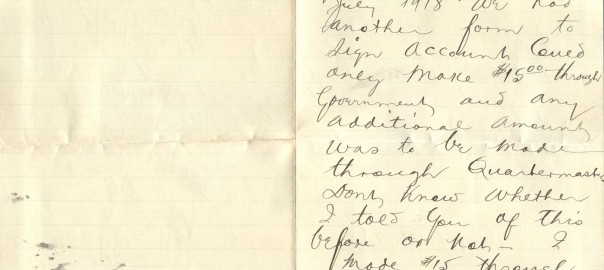 July 1918 We had
another form to
sign account Coued
only make $15.00 through
Government and any
additional amount
was to be made
through Quartermaster
Dont Know whether
I told you of this
before or not – I
made $15 through